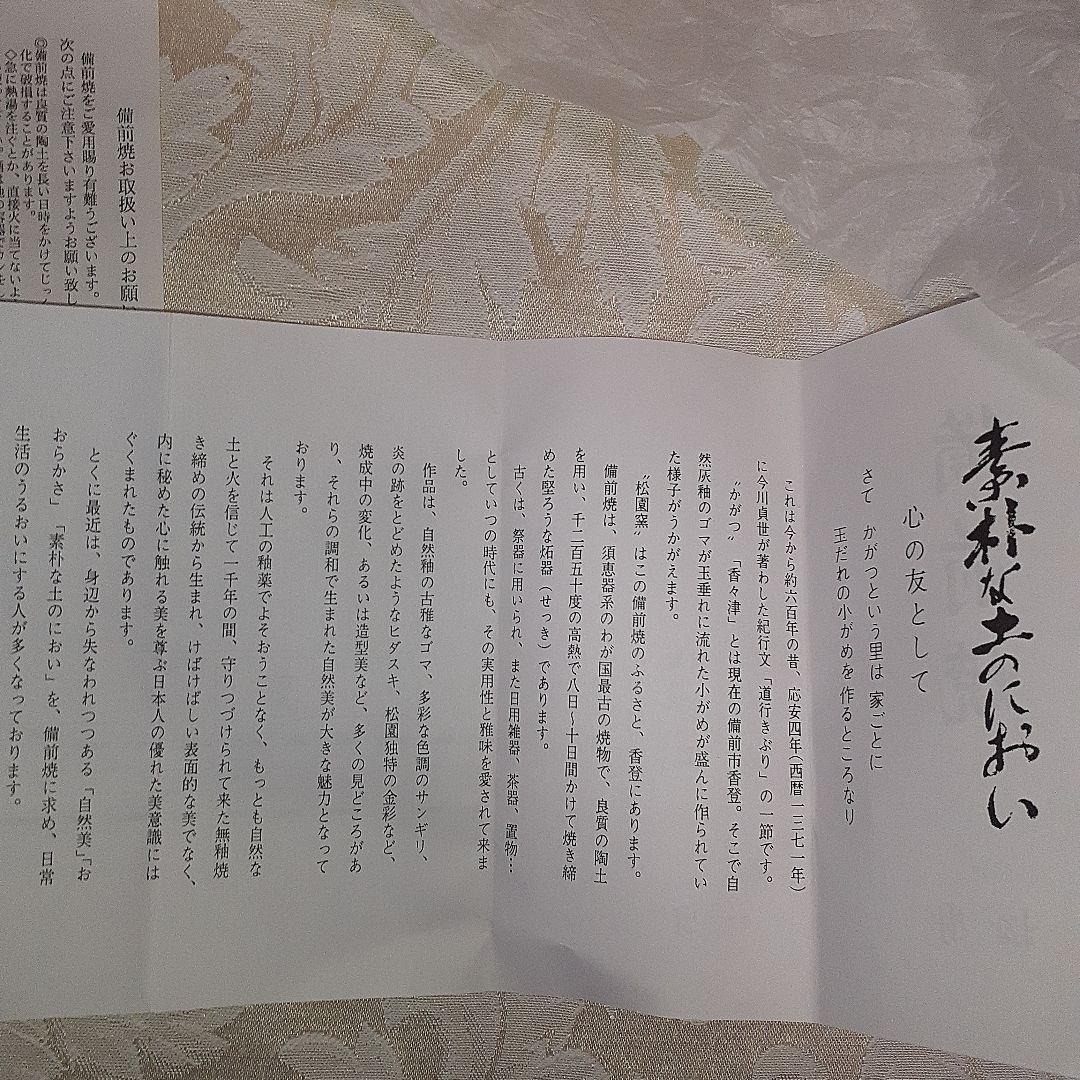 素朴な土のにおい
心の友として
さて かがつという里は 家ごとに
玉だれの小がめを 作るところなり
これは今から約六百年の昔、応安四年(西暦一三七一年)
に今川貞世が著わした紀行文「道行きぶり」の一節です。
〝かがつ〟「香々津」とは現在の備前市香登。そこで自
然灰釉のゴマが玉垂れに流れた小がめが盛んに作られてい
た様子がうかがえます。
〝松園窯〟はこの備前焼のふるさと、香登にあります。
備前焼は、須恵器系のわが国最古の焼物で、良質の陶土
を用い、千二百五十度の高熱で八日〜十日間かけて焼き締
めた堅ろうな炻器(せっき)であります。
古くは、祭器に用いられ、また日用雑器、茶器、置物…
としていつの時代にも、その実用性と雅味を愛されて来ま
した。
作品は、自然釉の古雅なゴマ、多彩な色調のサンギリ、
炎の跡をとどめたようなヒダスキ、松園独特の金彩など、
焼成中の変化、あるいは造型美など、多くの見どころがあ
り、それらの調和で生まれた自然美が大きな魅力となって
おります。
それは人工の釉薬でよそおうことなく、もっとも自然な
土と火を信じて一千年の間、守りつづけられて来た無釉焼
き締めの伝統から生まれ、けばけばしい表面的な美でなく、
内に秘めた心に触れる美を尊ぶ日本人の優れた美意識には
ぐくまれたものであります。
とくに最近は、身辺から失なわれつつある「自然美」「お
おらかさ」「素朴な土のにおい」を、備前焼に求め、日常
生活のうるおいにする人が多くなっております。
備前焼お取扱い上のお願
備前焼をご愛用賜り有難うございます。
次の点にご注意下さいますようお願い致し
◎備前焼は良質の陶土を長い日時をかけてじっ
化で破損することがあります。
◇急に熱湯を注ぐとか、直接火に当てないよ